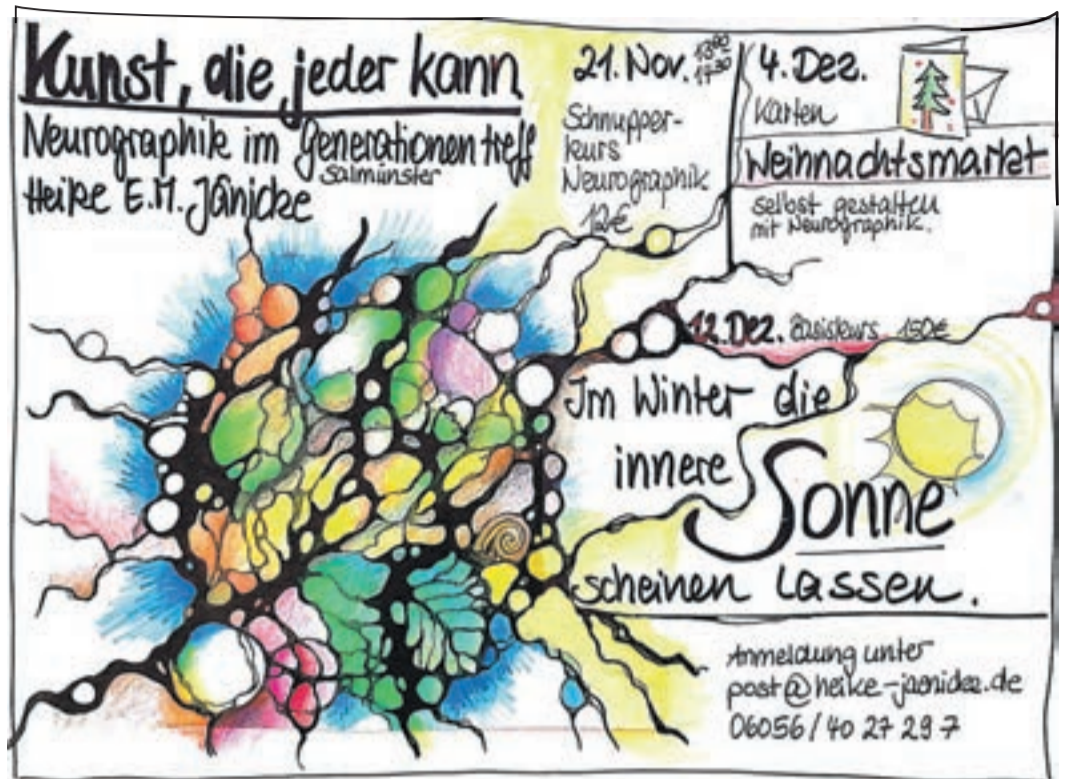 Kunst, die jeder kann
Neurographik im Generationentreff
Salmünster
Heike E.M. Jänicke
21. Nov. 13⁰⁰
17³⁰
Schnupper-
kurs
Neurographik
12€
4. Dez.
Karten
Weihnachtsmarkt
selbst gestalten
mit Neurographik.
12. Dez. Basiskurs 150€
Im Winter die
innere
Sonne
scheinen lassen.
Anmeldung unter
post@heike-jaenicke.de
06056/40 27 29 7